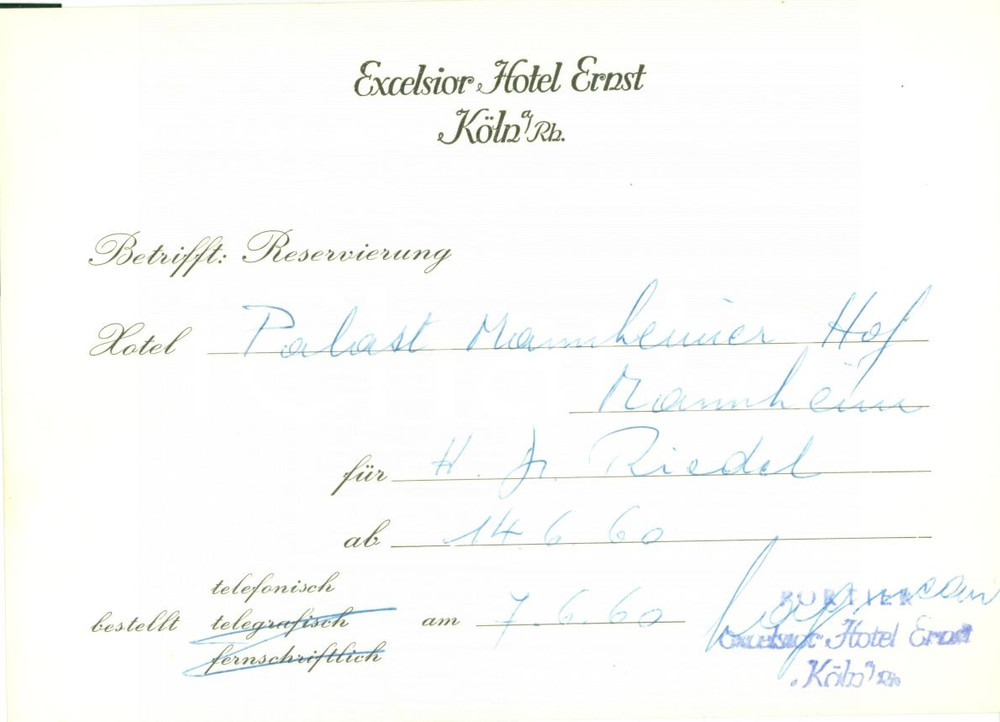 Excelsior Hotel Ernst
Köln a/Rh.
Betrifft: Reservierung
Hotel Palast Mannheimer Hof
Mannheim
für H. Dr. Riedel
ab 14.6.60
telefonisch
bestellt telegrafisch am 7.6.60
fernschriftlich
PORTIER
Excelsior Hotel Ernst
Köln a/Rh.